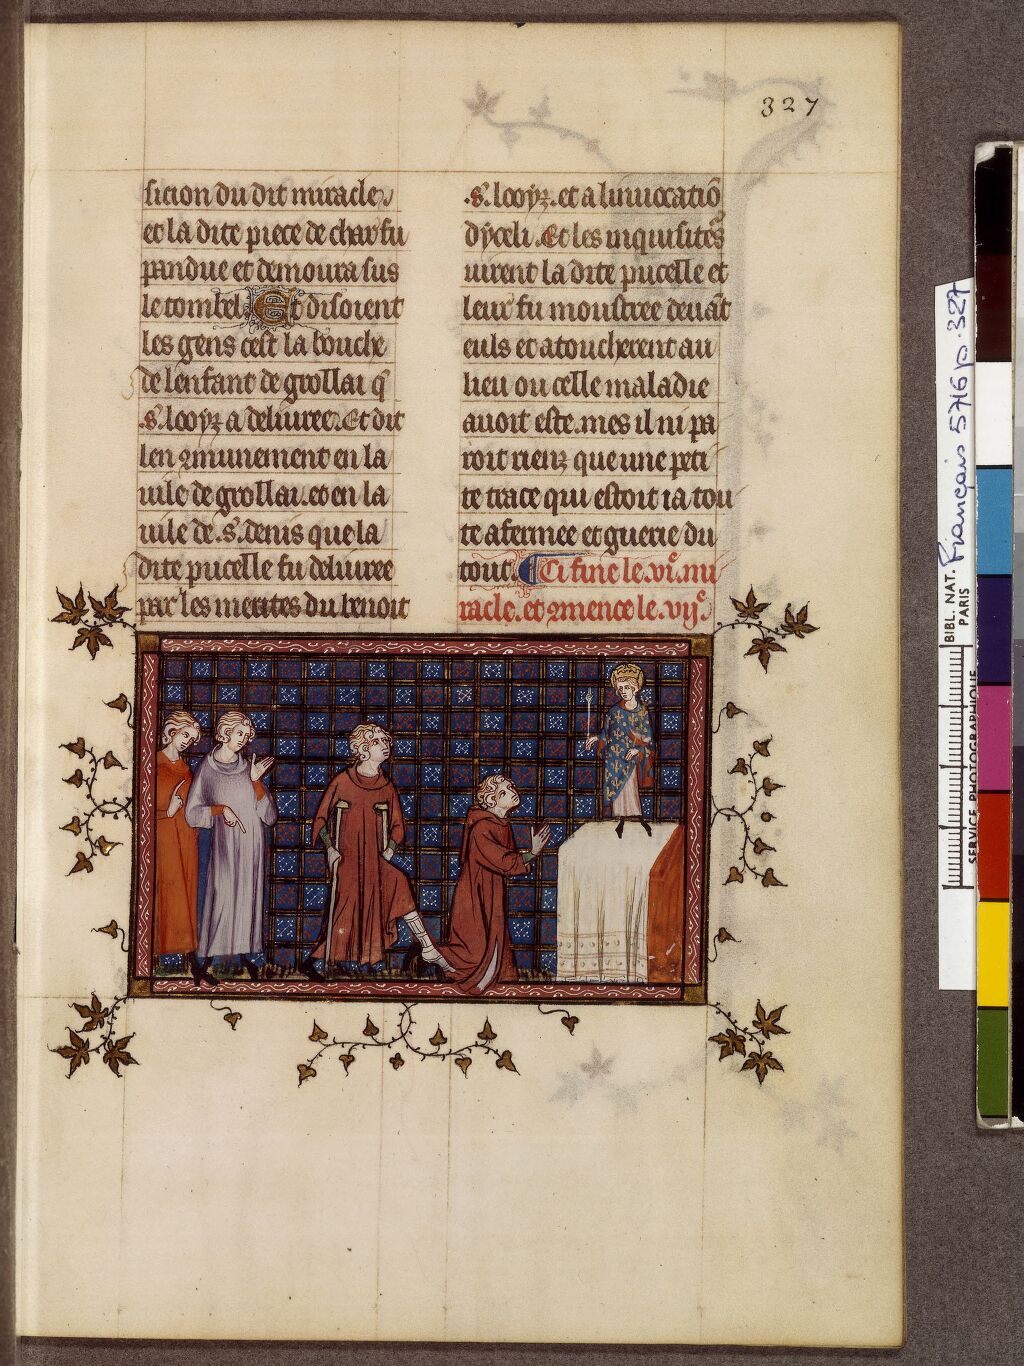 327
sicion du dit miracle
et la dite piece de char fu
pandue et demoura sus
le tombel Et disoient
les gens cest la bouche
de lenfant de grollai q̄
.s̄. looyz a deliuree. Et dit
len 9munement en la
uile de grollai. et en la
uile de .s̄. denis que la
dite pucelle fu deliuree
par les merites du benoit
.s̄. looyz. et a linuocatiō
dyceli. Et les inquisiteʳˢ
uirent la dite pucelle et
leur fu moustree deuāt
euls et atoucherent au
lieu ou celle maladie
auoit este. mes il ni pa
roit rienz que une peti
te trace qui estoit ia tou
te afermee et guerie du
tout. Ci fine le .vi.ᵉ mi
racle. et 9mence le .vij.ᵉ
BIBL. NAT. PARIS
Français 5716 p. 327
SERVICE PHOTOGRAPHIQUE